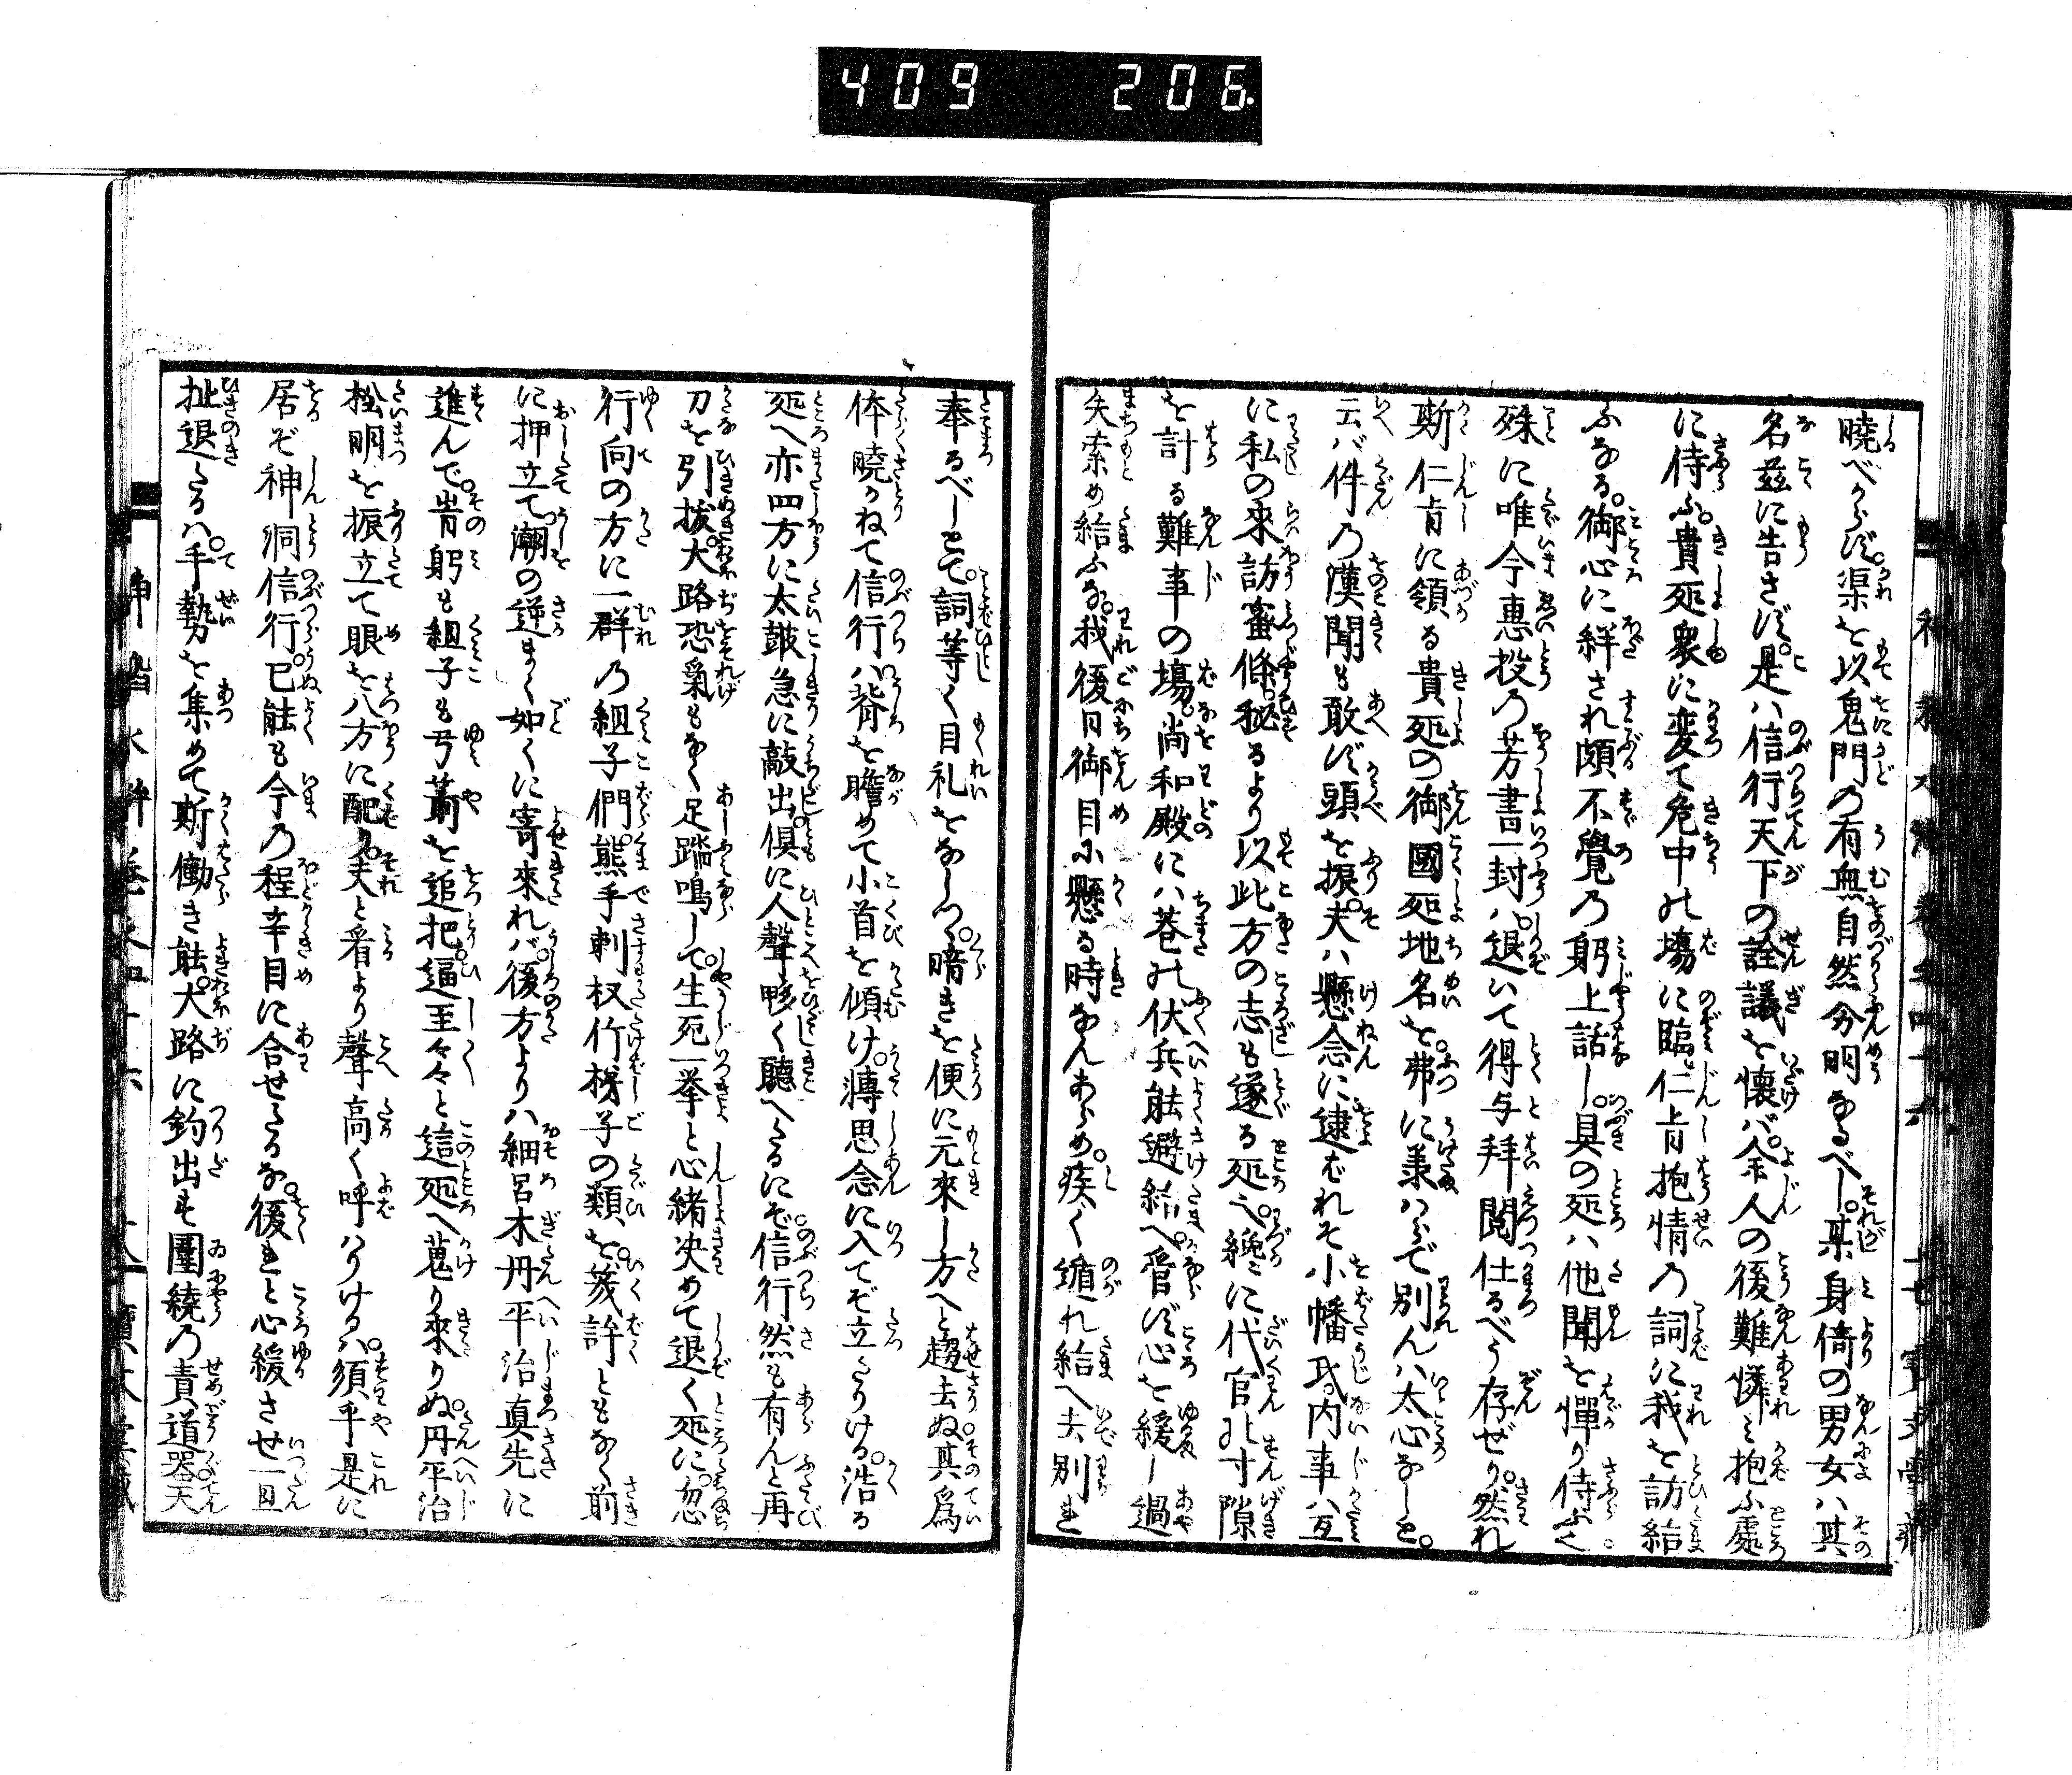 409 206.
曉べからず。渠を以鬼門の有無自然分明なるべし。某身倚の男女ハ其
名茲に告さず。是ハ信行天下の詮議を懐バ。余人の後難憐ミ抱ふ處
に侍ふ。貴処衆に変て危中の場に臨。仁肯抱情の詞に我を訪給
ふなる。御心に絆され頗不覺の躬上話し。具の処ハ他聞を憚り侍ふ。
殊に唯今惠投の芳書一封ハ。退いて得与拜閲仕るべう存ぜり。然れ
斯仁肯に領る貴処の御國処地名を。弗に美ハらで別んハ太心なしと。
云バ件の漢聞も敢ず頭を振。夫ハ懸念に逮ばれそ小幡氏。内事ハ互
に私の來訪蜜條。秘るより以此方の志も遂る処之。纔に代官の寸隙
を計る難事の塲も。尚和殿にハ巷の伏兵能避給へ。脗ず心を緩し過
失索め給ふな。我後日御目に懸る時なんあらめ。疾く循れ給へ去別れ
奉るべしとて。詞等く目礼をなしつ。暗きを便に元來し方へと趨去ぬ其爲
体曉かねて信行ハ。背を瞻めて小首を傾け。溥思念に入てぞ立たりける。浩る
処へ亦四方に太皷急に敲出。倶に人聲夥く聽へたるにぞ。信行然も有んと再
刀を引拔。大路恐臬もなく足踏鳴して。生死一挙と心緒决めて退く処に。忽
行向の方に一群の組子們。熊手刺杈竹梯子の類を。幾許ともなく前
に押立て。潮の逆まく如くに寄來れバ。後方よりハ細呂木丹平治真先に
進んで。岢躬も組子も弓箭を追把。逼至々々と這処へ蒐り來りぬ。丹平治
松明を振立て眼を八方に配り。夫と看より聲高く呼ハりけるハ。須乎是に
居ぞ神洞信行。已能も今の程辛目に合せたるな。後れと心緩させ一旦
扯退たるハ。手勢を集めて斯働き能。犬路に釣出を圍繞の責道器。天